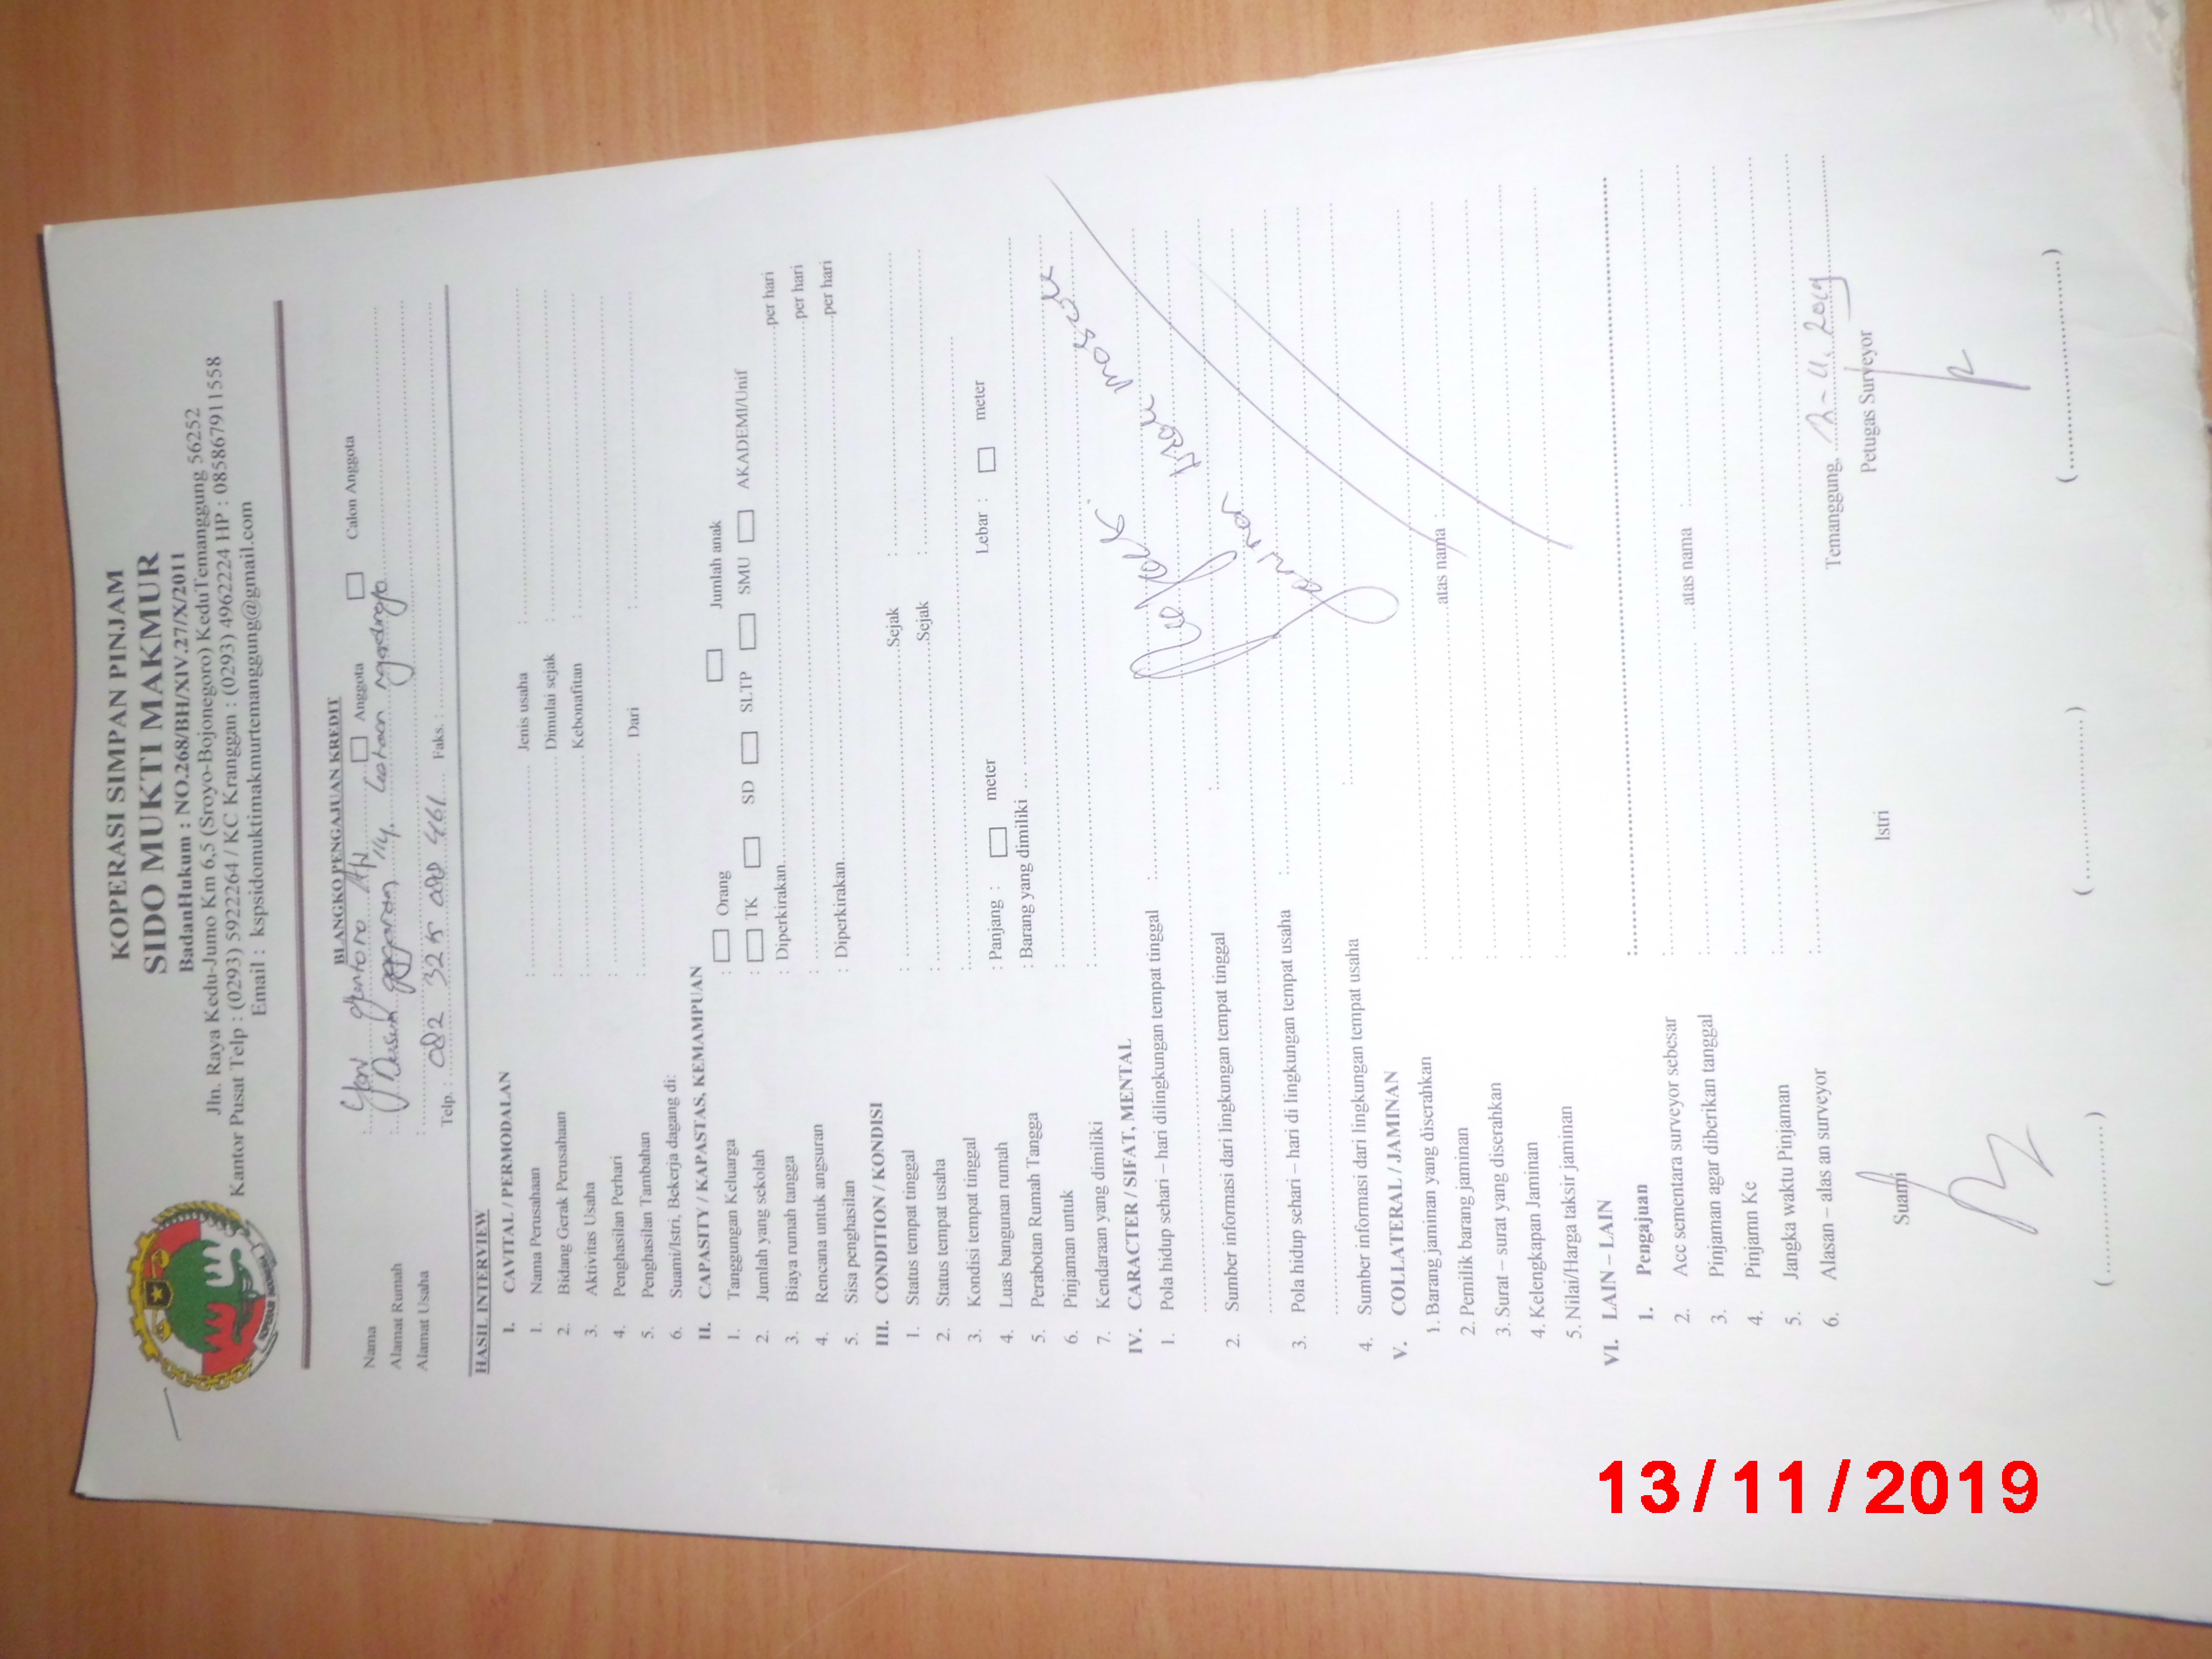 KOPERASI SIMPAN PINJAM
SIDO MUKTI MAKMUR
BadanHukum : NO.268/BH/XIV.27/X/2011
Jln. Raya Kedu-Jumo Km 6,5 (Sroyo-Bojonegoro) KeduTemanggung 56252
Kantor Pusat Telp : (0293) 5922264 / KC Kranggan : (0293) 4962224 HP : 085867911558
Email : kspsidomuktimakmurtemanggung@gmail.com
BLANGKO PENGAJUAN KREDIT
Nama : Anggota Calon Anggota
Alamat Rumah : Dusun
Alamat Usaha :
Telp. : 082 325 080 461 Faks. :
HASIL INTERVIEW
I. CAVITAL / PERMODALAN
1. Nama Perusahaan : Jenis usaha :
2. Bidang Gerak Perusahaan : Dimulai sejak :
3. Aktivitas Usaha : Kebonafitan :
4. Penghasilan Perhari :
5. Penghasilan Tambahan : Dari :
6. Suami/Istri, Bekerja dagang di:
II. CAPASITY / KAPASTAS, KEMAMPUAN
1. Tanggungan Keluarga : Orang Jumlah anak
2. Jumlah yang sekolah : TK SD SLTP SMU AKADEMI/Unif
3. Biaya rumah tangga : Diperkirakan per hari
4. Rencana untuk angsuran : per hari
5. Sisa penghasilan : Diperkirakan per hari
III. CONDITION / KONDISI
1. Status tempat tinggal : Sejak :
2. Status tempat usaha : Sejak :
3. Kondisi tempat tinggal :
4. Luas bangunan rumah : Panjang : meter Lebar : meter
5. Perabotan Rumah Tangga : Barang yang dimiliki
6. Pinjaman untuk :
7. Kendaraan yang dimiliki :
IV. CARACTER / SIFAT, MENTAL
1. Pola hidup sehari – hari dilingkungan tempat tinggal :
2. Sumber informasi dari lingkungan tempat tinggal :
3. Pola hidup sehari – hari di lingkungan tempat usaha :
4. Sumber informasi dari lingkungan tempat usaha :
V. COLLATERAL / JAMINAN
1. Barang jaminan yang diserahkan : atas nama :
2. Pemilik barang jaminan :
3. Surat – surat yang diserahkan :
4. Kelengkapan Jaminan :
5. Nilai/Harga taksir jaminan :
VI. LAIN – LAIN
1. Pengajuan :
2. Acc sementara surveyor sebesar : atas nama :
3. Pinjaman agar diberikan tanggal :
4. Pinjamn Ke :
5. Jangka waktu Pinjaman :
6. Alasan – alas an surveyor :
Temanggung, 2019
Suami Istri Petugas Surveyor
( ) ( ) ( )
13/11/2019